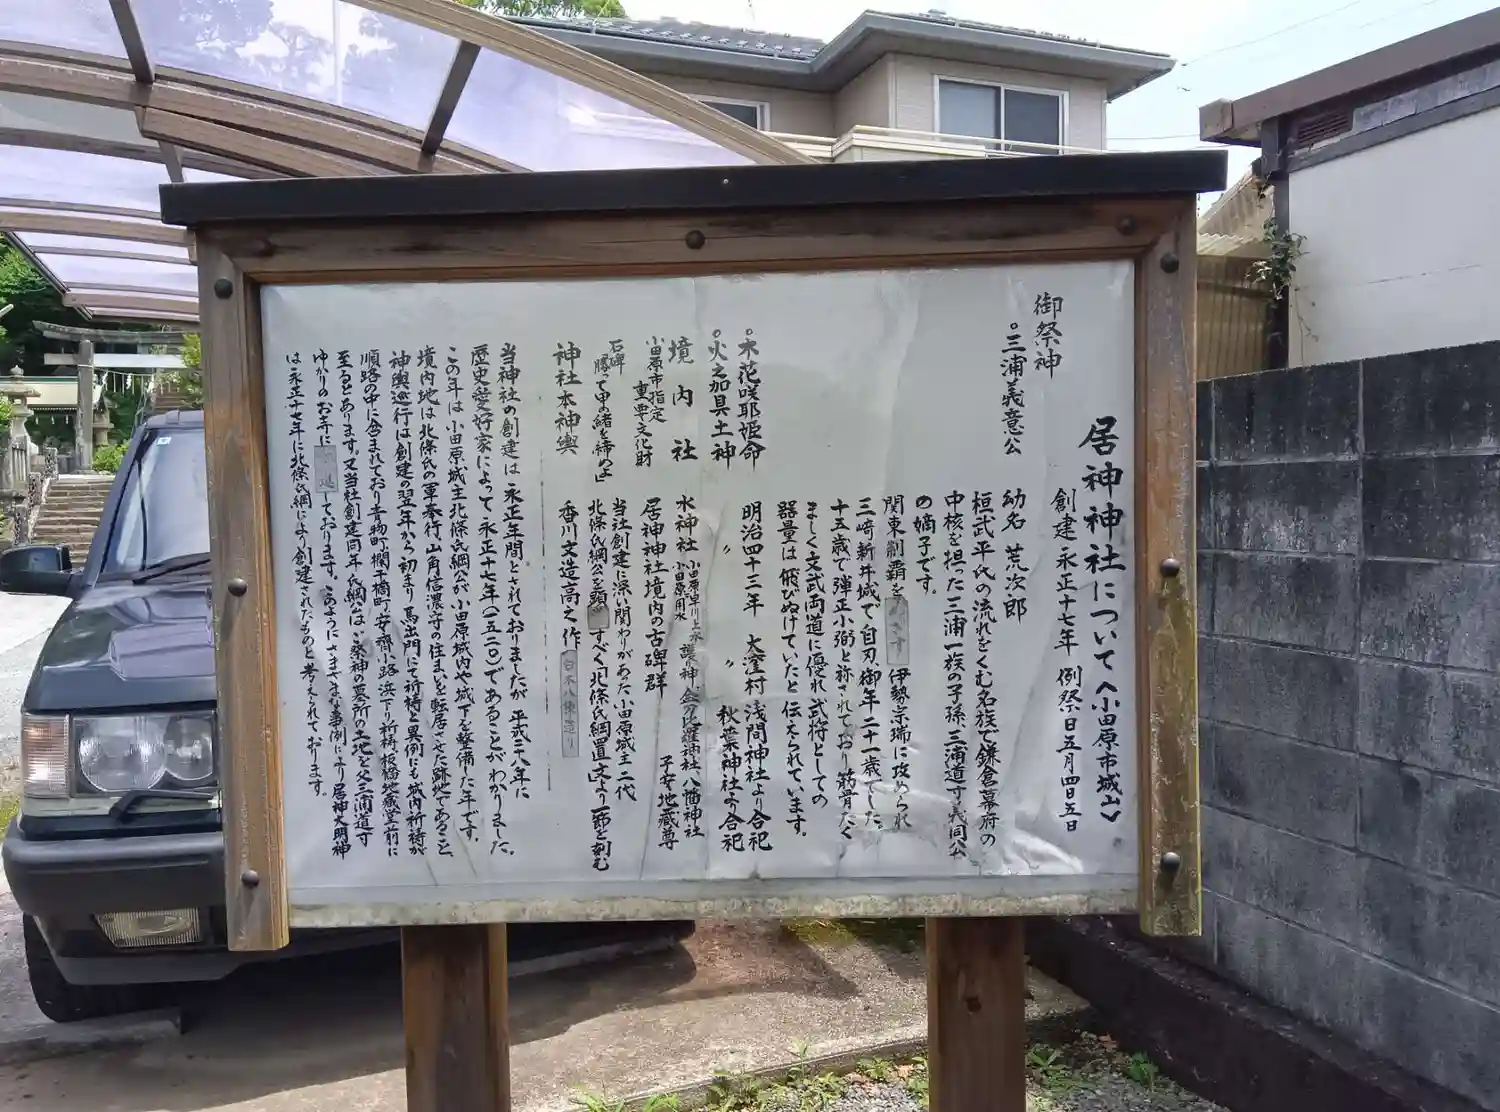 居神神社について（小田原市城山）
創建 永正十七年 例祭日五月四日五日
御祭神
三浦義意公
幼名 荒次郎
桓武平氏の流れをくむ名族で鎌倉幕府の
中核を担った三浦一族の子孫三浦道寸義同公
の嫡子です。
関東制覇を 伊勢宗瑞に攻められ
三﨑新井城で自刃御年二十一歳でした。
十五歳で弾正小弼と称されており筋骨たく
ましく文武両道に優れ武将としての
器量は飛びぬけていたと伝えられています。
木花咲耶姫命
明治四十三年 大窪村浅間神社より合祀
火之加具土神
〃 〃 秋葉神社より合祀
境内社
水神社 小田原早川上水 小田原用水 護り神 金刀比羅神社 八幡神社
子安地蔵尊
小田原市指定
重要文化財
居神神社境内の古碑群
石碑
勝って甲の緒を締めよ
当社創建に深い関わりがあった小田原城主二代
北條氏綱公を すべく「北條氏綱置文」より一節を刻む
神社本神輿
香川文造高之作
当神社の創建は永正年間とされておりましたが平成二八年に
歴史愛好家によって永正十七年(一五二〇)であることがわかりました。
この年は小田原城主北條氏綱公が小田原城内や城下を整備した年です。
境内地は北條氏の軍奉行山角信濃守の住まいを転居させた跡地であること、
神輿巡行は創建の翌年から初まり馬出門にて祈祷と異例にも城内祈祷が
順路の中に含まれており 欄干橋町 安斎小路 浜下り祈祷 板橋地蔵堂前に
至るとあります。又当社創建同年氏綱は 葵神の墓所の土地を父三浦道寸
ゆかりのお寺に しております。このようにさまざまな事例により居神大明神
は永正十七年に北條氏綱により創建されたものと考えられております。